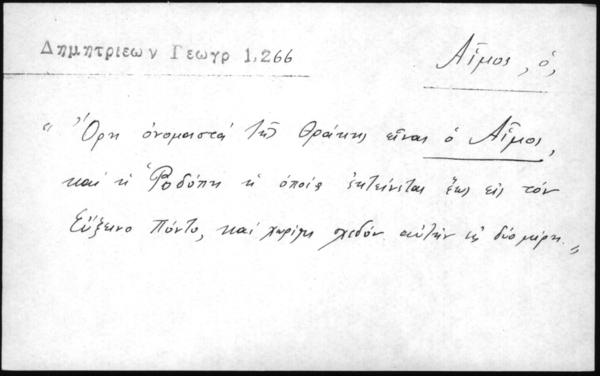 Δημητριεων Γεωγρ 1,266
Αἷμος, ὁ,
"Ὄρη ὀνομαστά τῆς Θράκης εἶναι ὁ Αἷμος,
καί ἡ Ῥοδόπη ἡ ὁποία ἐκτείνεται ἕως εἰς τόν
Εὔξεινο Πόντο, καί χωρίζει σχεδόν αὐτήν εἰς δύο μέρη."